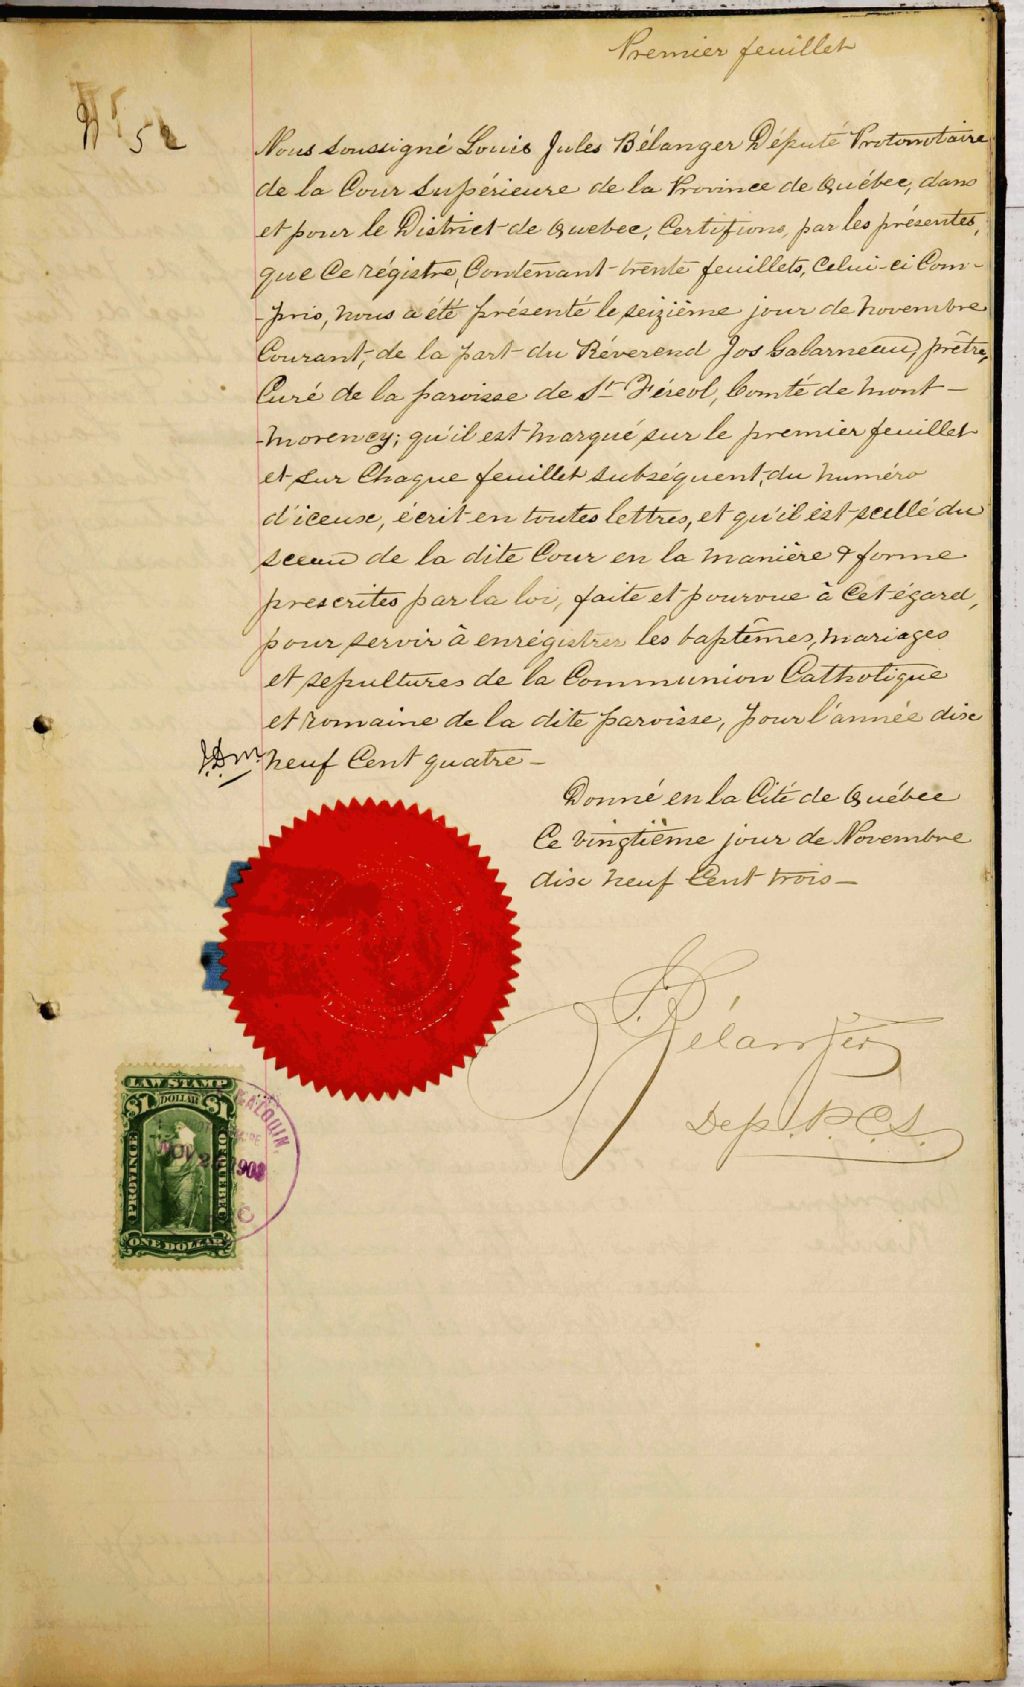 Premier feuillet
No 52
Nous soussigné Louis Jules Bélanger Député Protonotaire
de la Cour Supérieure de la Province de Québec, dans
et pour le District de Quebec, Certifions, par les présentes,
que Ce régistre, Contenant trente feuillets, Celui-ci Com-
-pris, nous a été présenté le seizième jour de novembre
Courant, de la part du Réverend Jos Galarneau, prêtre,
Curé de la paroisse de St Féréol, Comté de Mont-
-morency; qu'il est marqué sur le premier feuillet
et sur Chaque feuillet subséquent, du numéro
d'iceux, écrit en toutes lettres, et qu'il est scellé du
sceau de la dite Cour en la manière & forme
prescrites par la loi, faite et pourvue à Cet égard,
pour servir à enrégistrer les baptêmes, mariages
et sepultures de la Communion Catholique
et romaine de la dite paroisse, pour l'année dix
neuf Cent quatre -
Donné en la Cité de Québec
Ce vingtième jour de Novembre
dix neuf Cent trois -
Bélanger
Dep. P.C.S.
LAW STAMP
$1 DOLLAR $1
PROVINCE OF QUEBEC
ONE DOLLAR
MALOUIN.
NOV 1903